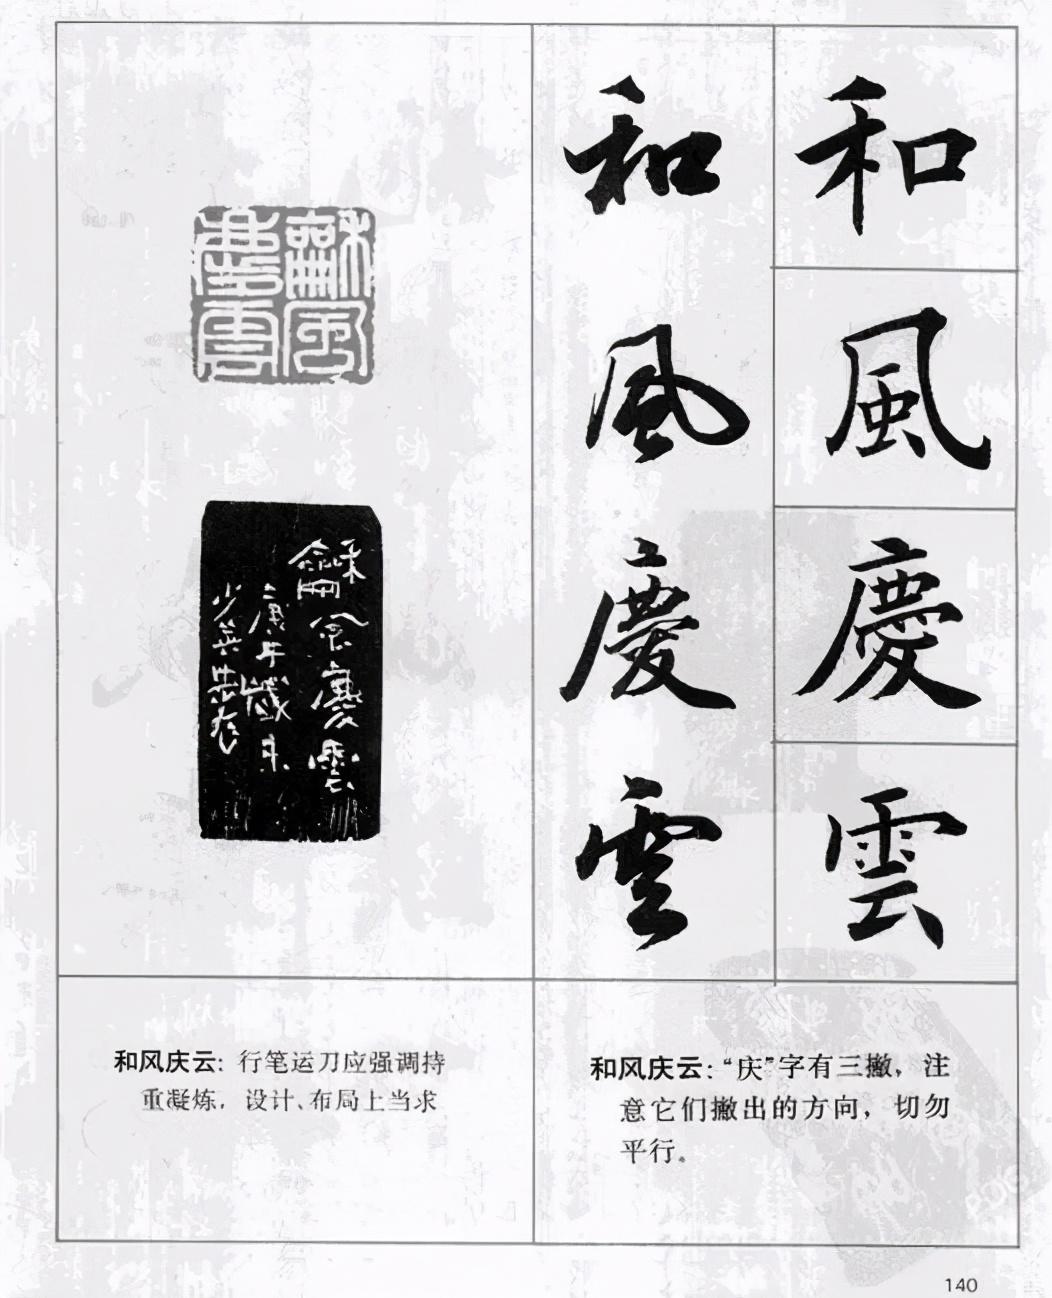 和
風
慶
雲
和
風
慶
雲
龢風
慶雲
龢
慶雲
庚午歲
少英
和风庆云：行笔运刀应强调持
重凝炼，设计、布局上当求
和风庆云：“庆”字有三撇，注
意它们撇出的方向，切勿
平行。
140